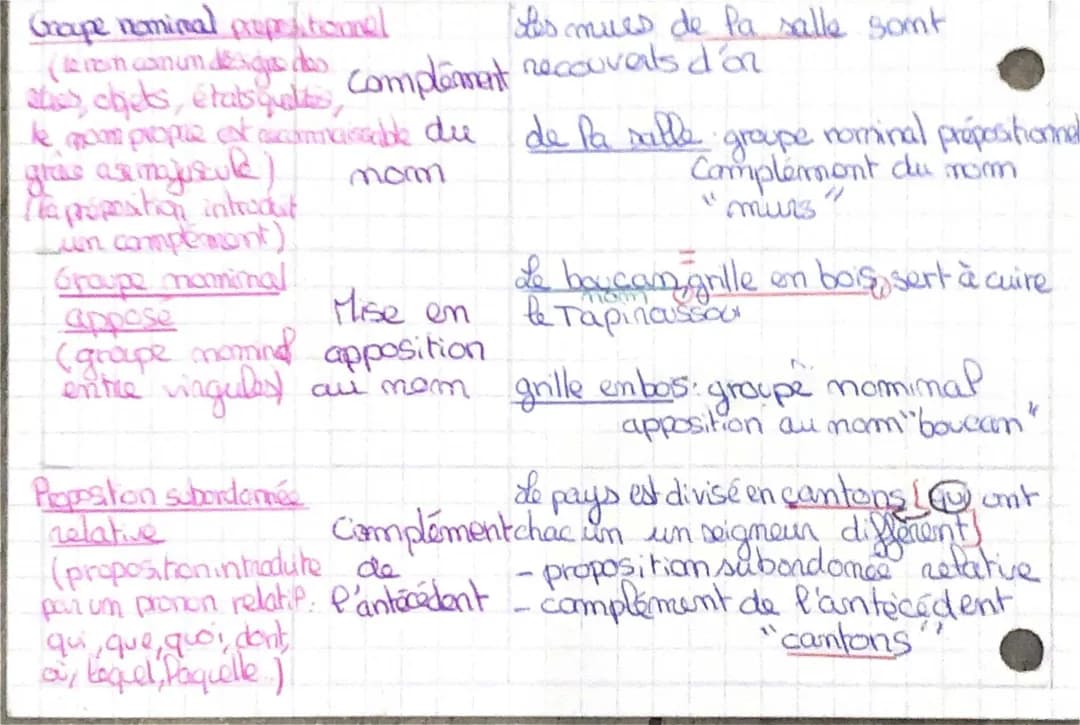 Groupe nominal prepositionnel
(le nom comun désigne des
êtres, objets, états qualités,
le nom propre est reconnaissable
grâce a sa majuscule)
(la préposition introduit
un complément)
Complément
du
nom
Les murs de la salle sont
recouverts d'or
de la salle : groupe nominal prépositionnel
Complément du nom
"murs"
Groupe nominal
apposé
(groupe nominal
entre virgules)
Mise en
apposition
au nom
=
Le boucan, grille en bois, sert à cuire
nom
le Tapiroussou
grille en bois : groupe nominal
apposition au nom "boucan"
Proposition subordonnée
relative
(proposition introduite
par un pronon relatif.
qui, que, quoi, dont,
où, lequel, laquelle.)
Complément
de
l'antécédent
Le pays est divisé en cantons [qui ont
chacun un seigneur différent]
- proposition subordonnée relative
- complément de l'antécédent
"cantons"